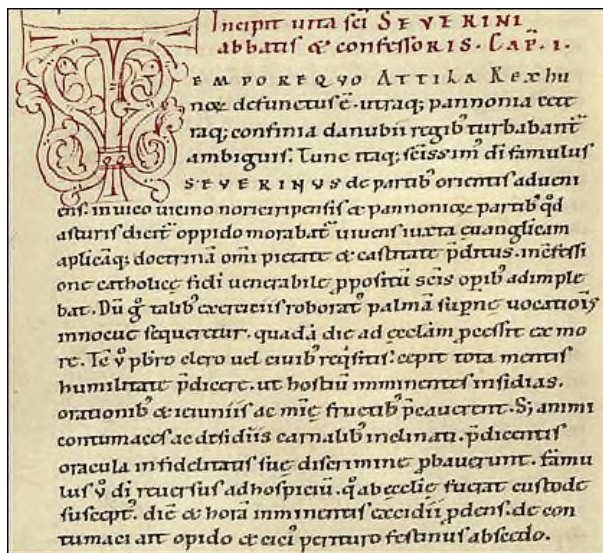 Incipit uita scī SEVERINI
abbatis & confessoRIS. Cap̄. I.
TEMPORE QVO ATTILA Rex hu
noꝝ defunctus ē. utraq; pannonia cete
raq; confinia danubii regib; turbabant᷑
ambiguis. Tunc itaq; sc̄issim᷒ dī famulus
SEVERINUS de partib; orientis adueni
ens. in uico uicino noriciripensis & pannonioꝝ partib; qd̄
asturis dicit᷑ oppido morabat᷑ uiuens iuxta euanglicam
aplicāq; doctrinā om̄i pietate & castitate p̄ditus. incōfessi
one catholicę fidi uenerabile ppositū sc̄is opib; adimple
bat. Dū g̊ talib; exerciciis roborat᷒ palmā supnę uocatiōis
innocue sequeretur. quadā die ad ęcclam pcessit ex mo
re. Tē v̊ pbr̄o clero uel ciuib; reqsitis. cepit tota mentis
humilitate p̄dicere. ut hostiū imminentes insidias.
orationib; & ieiuniis ac mīę fructib; p̄cauerent. S; animi
contumaces ac desidiis carnalib; inclinati. p̄dicentis
oracula infidelitatis suę discrimine pbauerunt. famu
lus v̊ dī reuersus ad hospiciū. q̊ ab ęcclię fuerat custode
suscept᷒. diē & horā imminentis excidii pdens. de con
tumaci ait opido & cici᷒ perituro festinus abscedo.